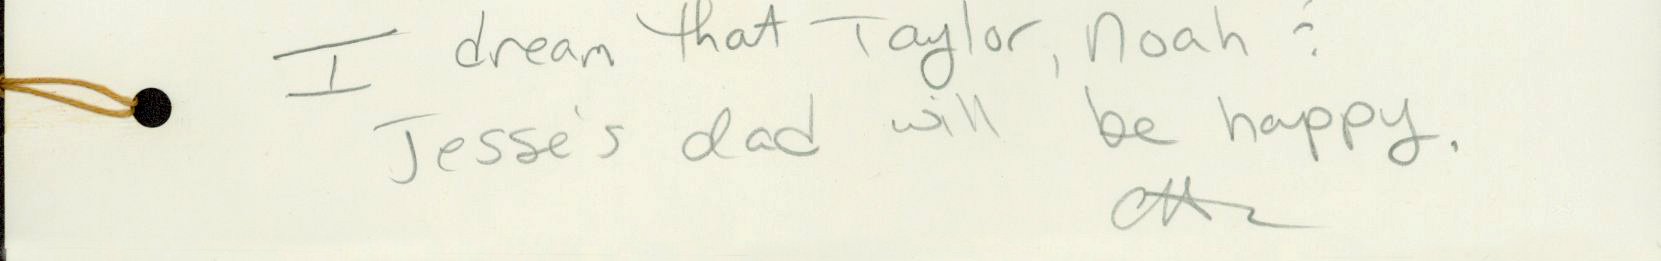 I dream that Taylor, Noah &
Jesse's dad will be happy.